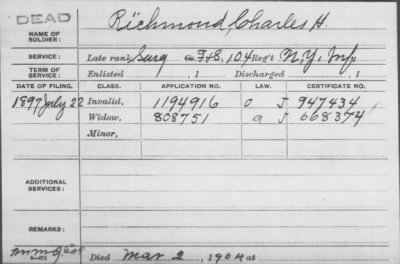 DEAD
NAME OF SOLDIER: Richmond, Charles H.
SERVICE: Late rank, Surg Co. F&S, 104 Reg't N.Y. Inf.
TERM OF SERVICE: Enlisted , 1 Discharged , 1
DATE OF FILING. CLASS. APPLICATION NO. LAW. CERTIFICATE NO.
1897 July 22 Invalid, 1194916 J 947434
Widow, 808751 J 668374
Minor,
ADDITIONAL SERVICES:
REMARKS:
Died Mar 2, 1904 at